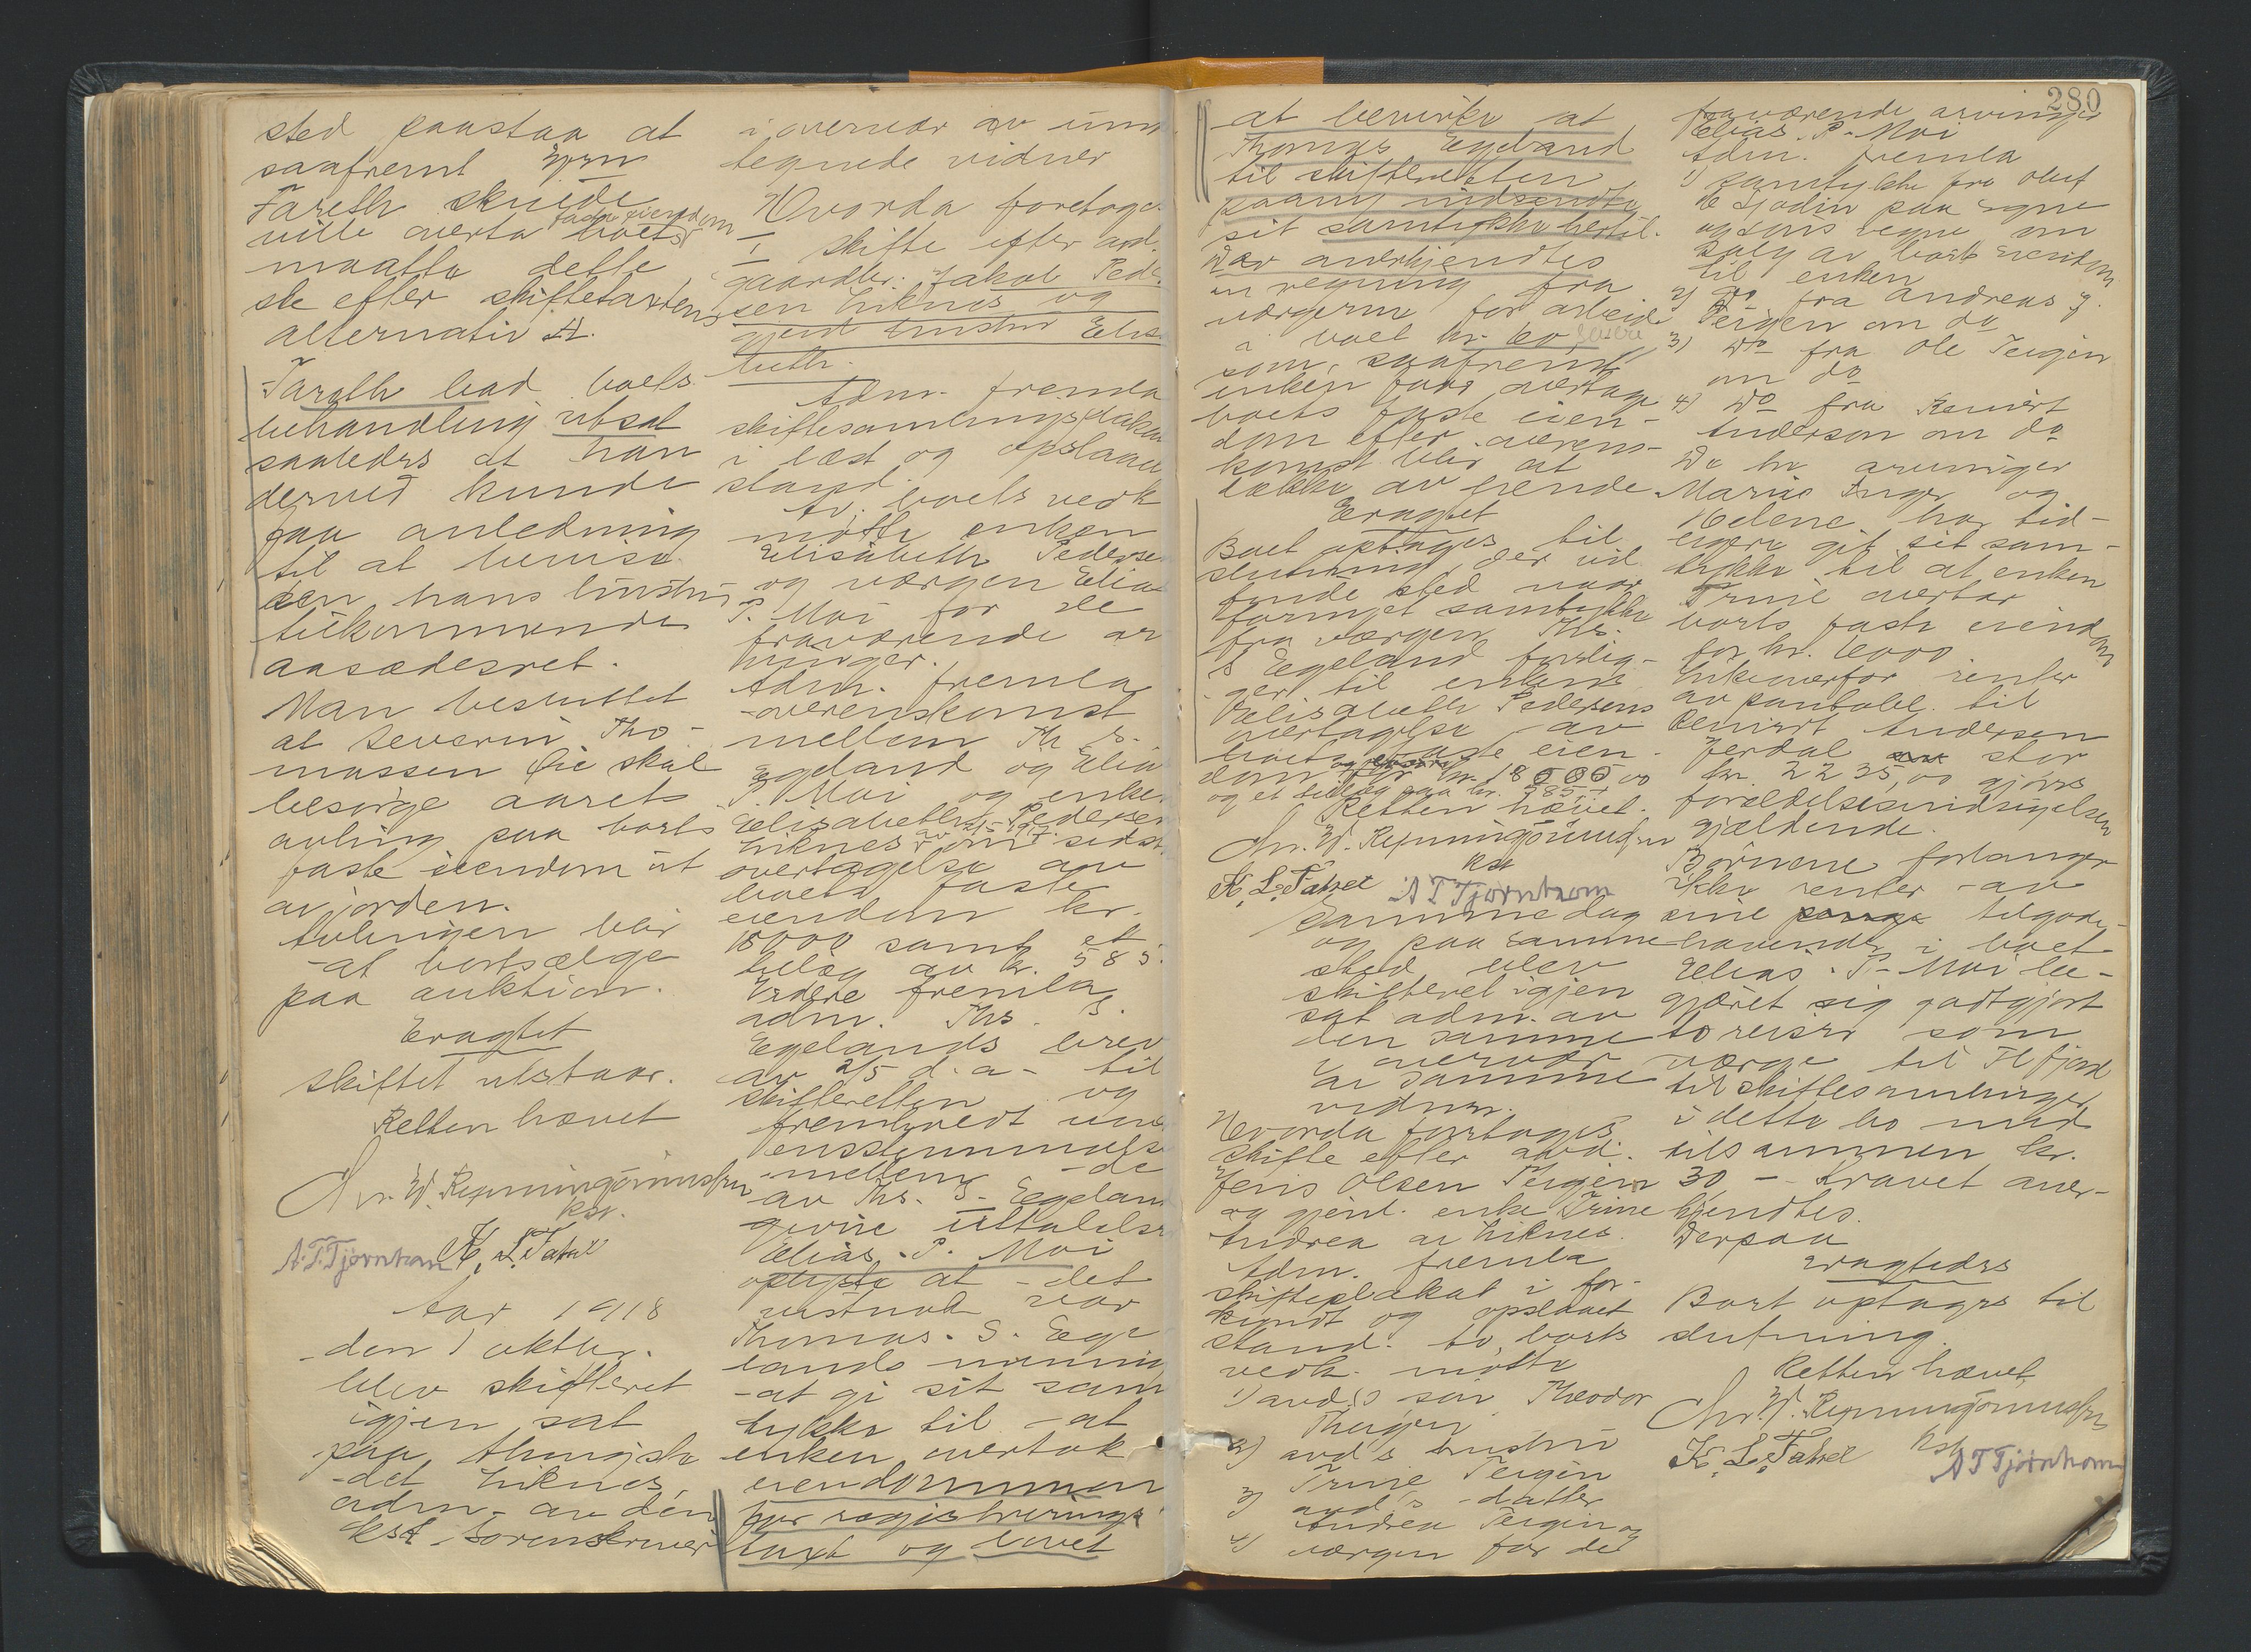 sted paastaa at
saafremt Jørn
Fareth skulde
ville overta boets faste eiendom
maatte dette
ske efter skiftetaxtens
alternativ A.
Fareth bad boets
behandling utsat
saaledes at han
derved kunde
faa anledning
til at bevise
den hans hustru
tilkommende
aasædesret.
Man besluttet
at Severin Tho-
massen Lie skal
besørge aarets
avling paa boets
faste eiendom ut
av jorden.
Avlingen blir
at bortsælge
paa auktion.
Eragtet
Skiftet utstaar.
Retten hævet
Chr. W. Rynning-Tønnesen
kst.
A. T. Tjørnhom K. L. Tatzel
Aar 1918
den 1 oktbr.
blev skifteret
igjen sat
paa thingste-
det Liknes,
adm. av den
kst. sorenskriver
i overvær av und
tegnede vidner
Hvorda foretoges
I skifte efter avd.
gaardbr. Jakob Peder
sen Liknes og
gjenl. hustru Elisa
beth.
Adm. fremla
skiftesamlingsplakat
i læst og opslaaet
stand.
Av boets vedk
møtte enken
Elisabeth Pedersen
og værgen Elias
P. Moi for de
fraværende ar
vinger.
Adm. fremla
overenskomst
mellem Th. S.
Egeland og Elias
P. Moi og enken
Elisabeth Pedersen
Liknes av 21/5 1917 om sidst
overtagelse av
boets faste
eiendom kr.
18000 samt et
beløp av kr. 585.
Videre fremla
adm. Ths. S.
Egelands brev
av 2/5 d.a. til
skifteretten og
fremholdt uov
ensstemmelse
mellem de
av Ths. S. Egeland
givne uttalelser
Elias P. Moi
oplyste at det
vistnok var
Thomas S. Ege
lands mening
at gi sit sam
tykke til at
enken overtok
eiendommen
for registrerings
taxt og lovet
280
at bevirke at
Thomas Egeland
til skifteretten
paany indsendte
sit samtykke hertil.
Der anerkjendtes
en regning fra
værgerne for arbeide
i boet kr. 60,
som, saafremt
enken faar overtage
boets faste eien-
dom efter overens-
komst blir at
dække av hende.
Eragtet
Boet optages til
slutning, der vil
finde sted naar
fornyet samtykke
fra værgen Ths.
S Egeland forelig-
ger til enkens
Elisabeth Pedersens
overtagelse av
boets faste eien-
dom og løsøre for kr. 18000,00
og et tillæg paa kr. 585.-
Retten hævet.
Chr. W. Rynning-Tønnesen
kst
K. L. Tatzel A T Tjørnhom
Samme dag
og paa samme
sted blev
skifteret igjen
sat adm. av
den samme
i overvær
av samme
vidner.
Hvorda foretoges
skifte efter avd.
Jens Olsen Teigen
og gjenl. enke Trine
Andrea av Liknes.
Adm. fremla
skifteplakat i for-
kyndt og opslaaet
stand. Av boets
vedk. møtte
1) avd.s søn Theodor
Theigen
2) avd's hustru
Trine Teigen
3) avd's datter
Andrea Teigen og
4) værgen for de
fraværende arvinger
Elias P. Moi
Adm. fremla
1) samtykke fra Oluf
E Sjødin paa egne
og søns vegne om
salg av boets eiendom
til enken
2) do fra Andreas J.
Teigen om do
3) Do fra Ole Teigen
om do
4) Do fra Reinert
Andersen om do
De to arvinger
Marie Inger og
Helene har tid-
ligere git sit sam-
tykke til at enken
Trine overtar
boets faste eiendom
for kr. 6000
Likeoverfor renter
av pantobl. til
Reinert Andersen
Jerdal stor
kr. 2235,00 gjøres
forældelsesindsigelsen
gjældende.
Børnene forlanger
ikke renter av
sine tilgode-
havender i boet
Elias P. Moi be-
gjæret sig godtgjort
to reiser som
værge til Flekkefjord
til skiftesamlinger
i dette bo med
tilsammen kr.
30 - Kravet aner-
kjendtes.
Derpaa
eragtedes
Boet optages til
slutning.
Retten hævet
Chr. W. Rynning-Tønnesen
kst
K. L. Tatzel A T Tjørnhom